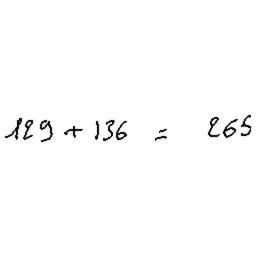 129 + 136 = 265